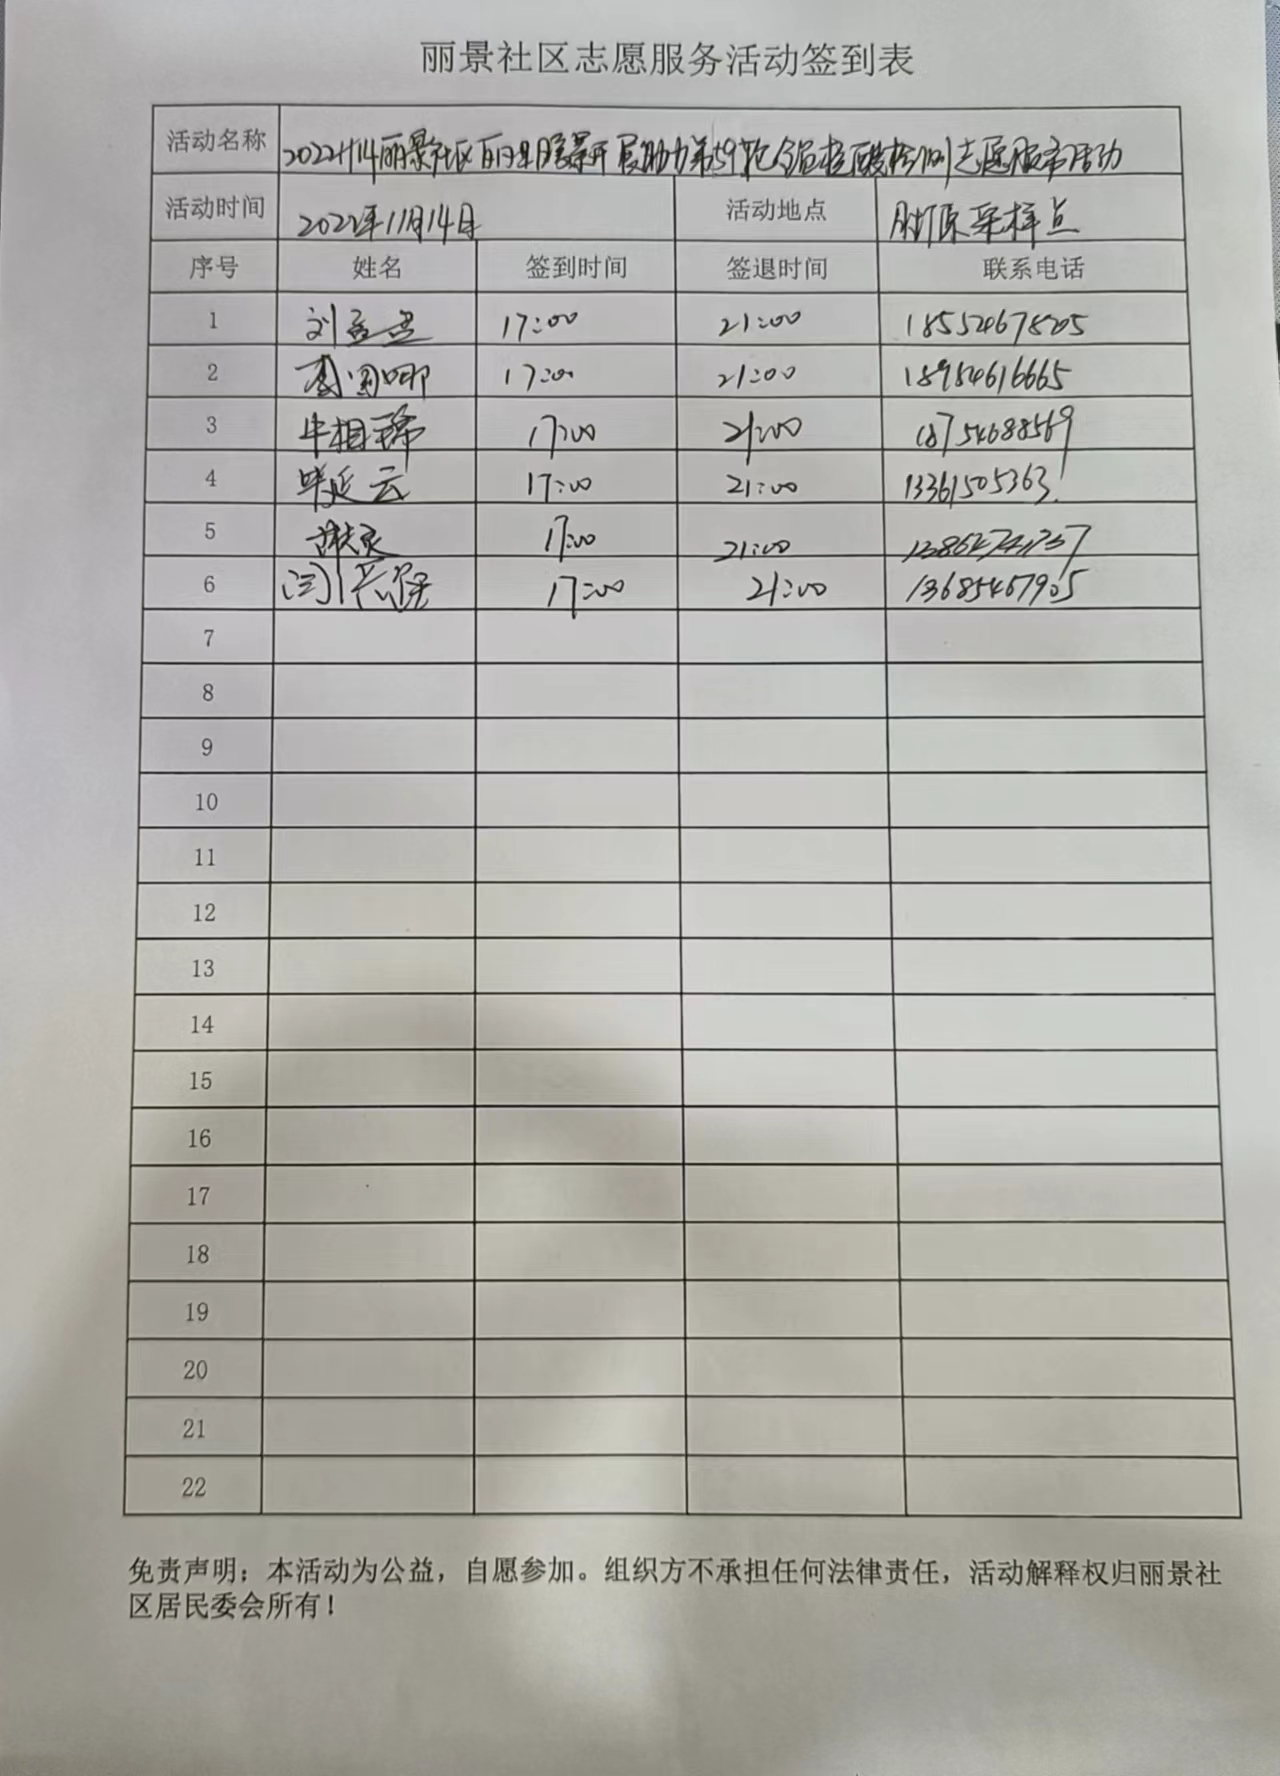 丽景社区志愿服务活动签到表
活动名称 丽景社区 开展助力第59轮全员核酸检测志愿服务活动
活动时间 2022年11月14日 活动地点 采样点
序号 姓名 签到时间 签退时间 联系电话
1 刘孟 17:00 21:00
2 17:00 21:00 18954616665
3 牛相 17:00 21:00 18754688569
4 毕延云 17:00 21:00 13361505363
5 17:00 21:00
6 闫 17:00 21:00 13685467905
7
8
9
10
11
12
13
14
15
16
17
18
19
20
21
22
免责声明：本活动为公益，自愿参加。组织方不承担任何法律责任，活动解释权归丽景社
区居民委会所有！